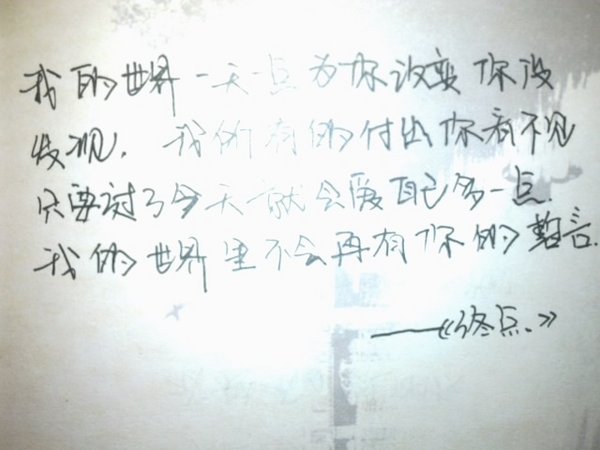 我的世界一天一点为你改变你没
发现. 我所有的付出你看不见
只要过了今天就会爱自己多一点.
我的世界里不会再有你的誓言.
——《终点.》